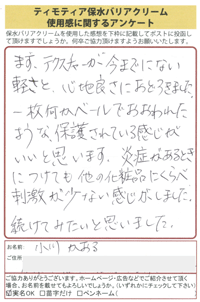 ティモティア保水バリアクリーム
使用感に関するアンケート
保水バリアクリームを使用した感想を下枠に記載してポストに投函し
て頂けますでしょうか。何卒ご協力頂けますようお願いいたします。
まず、テクスチャーが今までにない
軽さと、心地良さにおどろきました。
一枚何かベールでおおわれた
ような、保護されている感じが
いいと思います。炎症があるとき
につけても他の化粧品にくらべ
刺激が少ない感じがしました。
続けてみたいと思いました。
お名前 小川 かある
ご住所
ご協力ありがとうございます。ホームページ・広告などでご紹介させて頂く
場合、お名前を載せてもよろしいでしょうか。(いずれかにチェックして下さい)
☑実名OK □苗字だけ □ペンネーム(